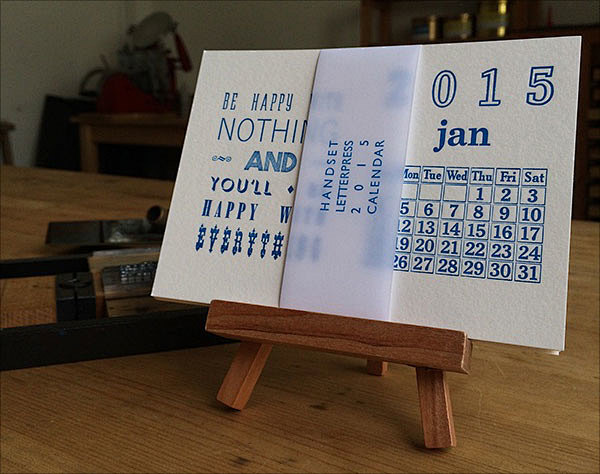 BE HAPPY
NOTHIN
AND
YOU'LL
HAPPY W
EVERYTH
HANDSET
LETTERPRESS
2 0 1 5
CALENDAR
2015
jan
Mon Tue Wed Thu Fri Sat
1 2 3
5 6 7 8 9 10
12 13 14 15 16 17
19 20 21 22 23 24
26 27 28 29 30 31